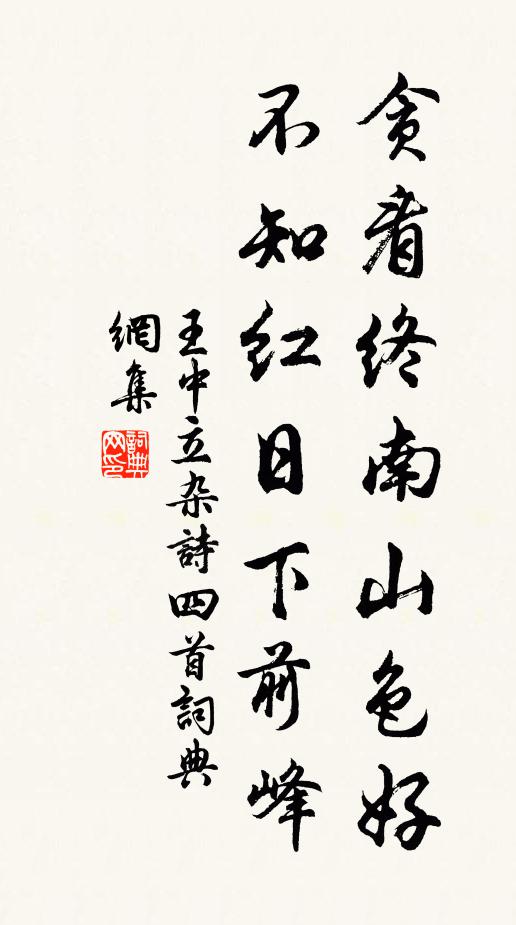 貪看終南山色好
不知紅日下前峰
王中立杂詩四首詞典
網集
詞典
网印